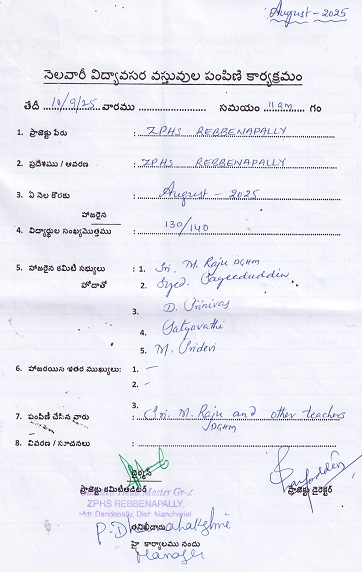 August - 2025
నెలవారీ విద్యావసర వస్తువుల పంపిణి కార్యక్రమం
తేదీ 10/9/25 వారము ............ సమయం 11 am గం
1. ప్రాజెక్టు పేరు : ZPHS REBBENAPALLY
2. ప్రదేశము / ఆవరణ : ZPHS REBBENAPALLY
3. ఏ నెల కొరకు : August - 2025
హాజరైన
4. విద్యార్థుల సంఖ్యమొత్తము : 130/140
5. హాజరైన కమిటి సభ్యులు : 1. Sri. M. Raju DGHM
హోదాతో 2. Syed. Sayeeduddin
3. D. Srinivas
4. Satyavathi
5. M. Sridevi
6. హాజరయిన ఇతర ముఖ్యులు: 1. —
2. —
3.
7. పంపిణి చేసిన వారు : Sri. M. Raju and other teachers
DGHM
8. వివరణ / సూచనలు :
ప్రాజెక్టు కమిటీఆడిటర్ ప్రాజెక్టు డైరెక్టర్
Master Gr-
ZPHS REBBENAPALLY,
Dandepally, Dist: Mancherial
తనిఖీదారు
హై కార్యాలము నందు
Manager